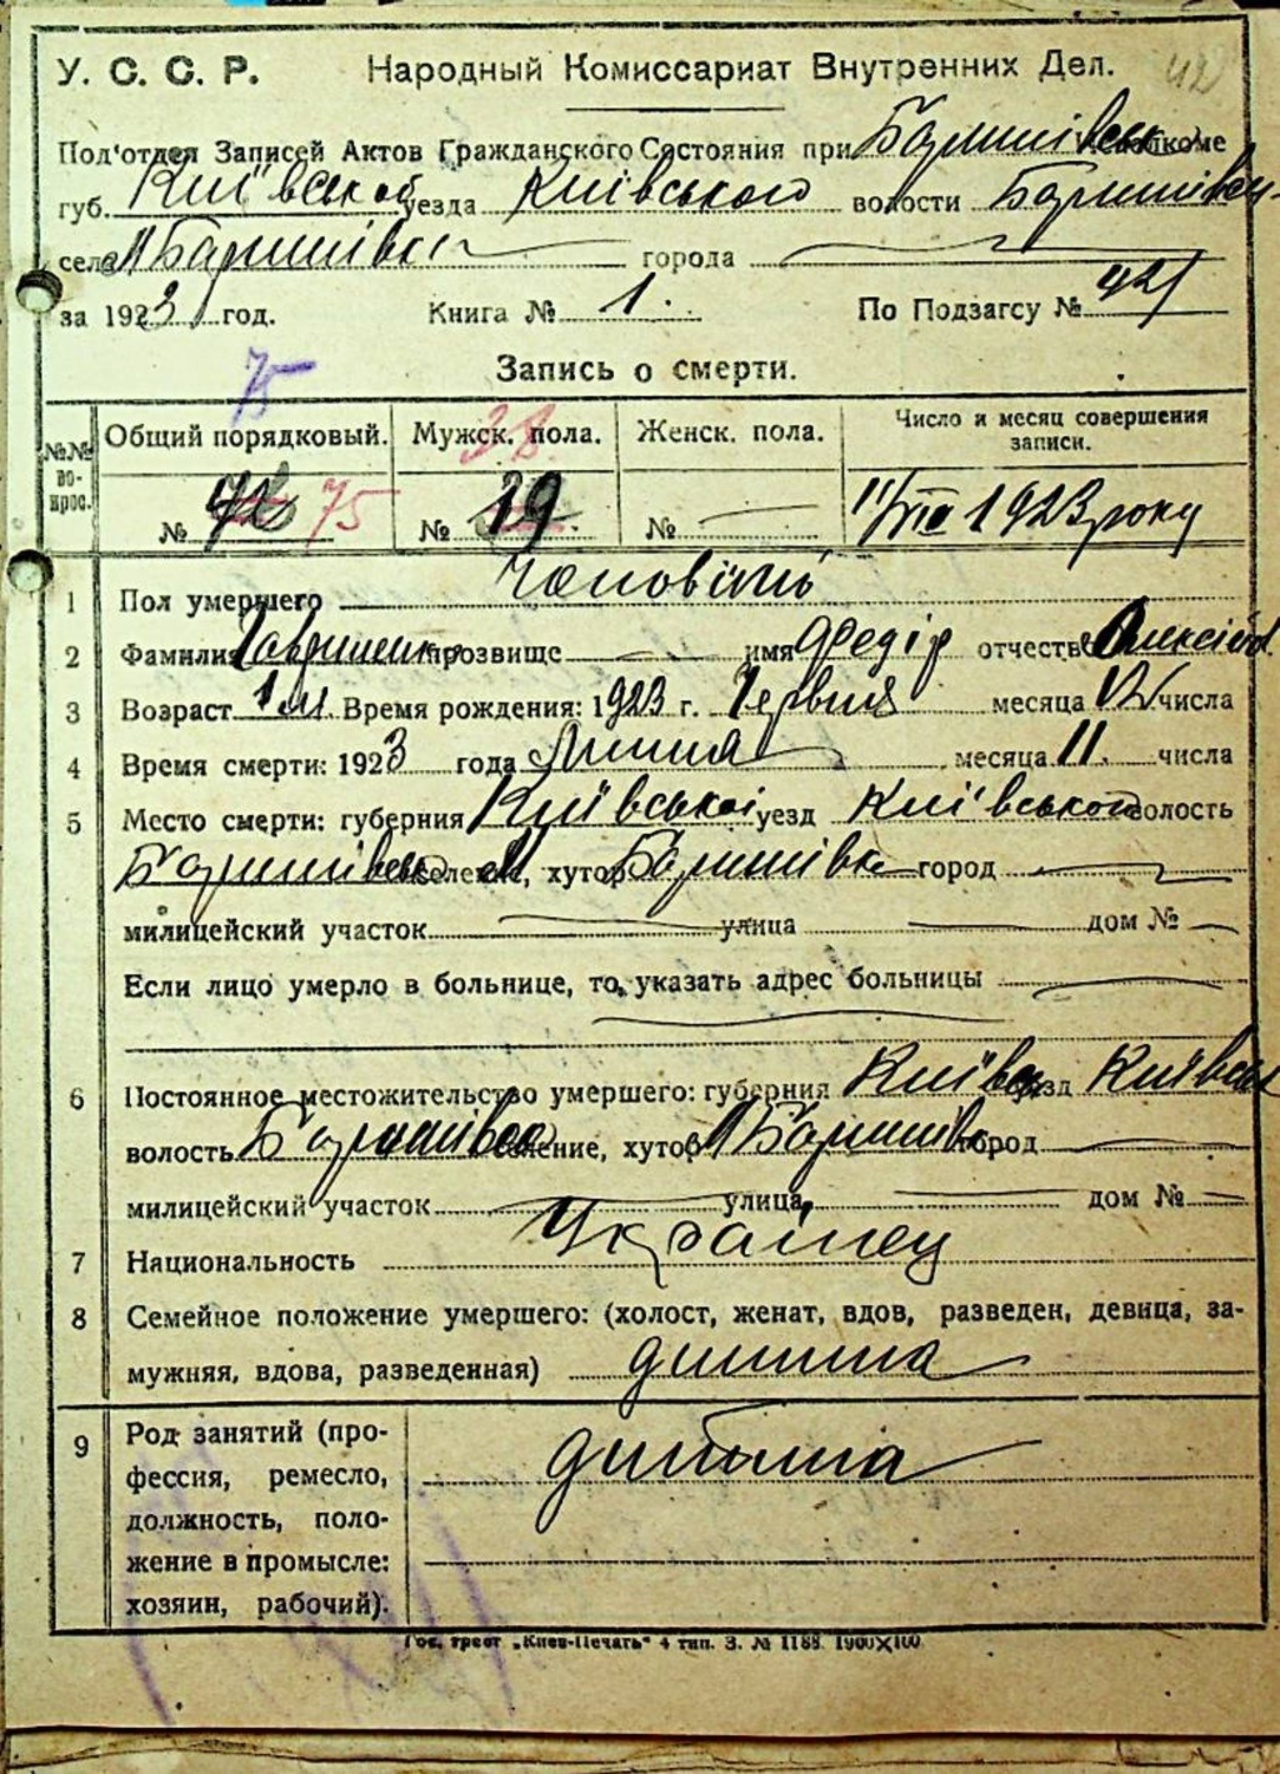 У. С. С. Р. Народный Комиссариат Внутренних Дел. 42
Под'отдел Записей Актов Гражданского Состояния при Баришівськ
губ. Київської уезда Київського волости Баришівськ
села М Баришівки города
за 1923 год. Книга № 1. По Подзагсу №
75 Запись о смерти.
№№ вопрос. Общий порядковый. Мужск. пола. Женск. пола. Число и месяц совершения записи.
38.
№ 75 № 19. № 11/VII 1923 року
1 Пол умершего Чоловічий
2 Фамилия Гавриленко прозвище имя Федір отчество Олексійов
3 Возраст 1 м. Время рождения: 1923 г. Червня месяца 12 числа
4 Время смерти: 1923 года Липня месяца 11. числа
5 Место смерти: губерния Київської уезд Київського волость
Баришівськ селение, хутор М Баришівка город
милицейский участок улица дом №
Если лицо умерло в больнице, то, указать адрес больницы
6 Постоянное местожительство умершего: губерния Київськ уезд Київськ
волость Баришівська селение, хутор М Баришівк город
милицейский участок улица, дом №
7 Национальность Украінец
8 Семейное положение умершего: (холост, женат, вдов, разведен, девица, за-
мужняя, вдова, разведенная) дитина
9 Род занятий (про-
фессия, ремесло, дитина
должность, поло-
жение в промысле:
хозяин, рабочий).
Гос. трест „Киев-Печать" 4 тип. З. № 1188. 1900X100